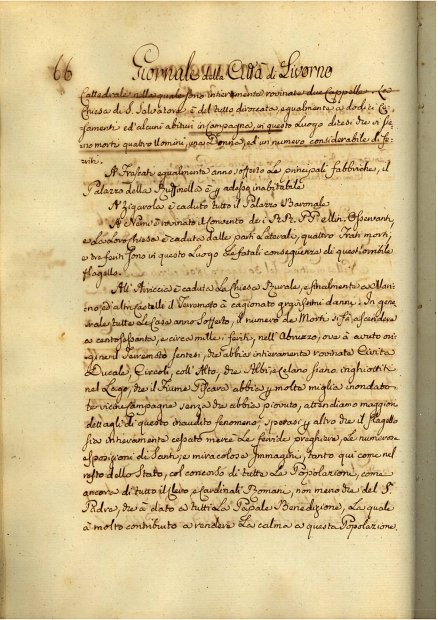 66 Giornale della Città di Livorno
Cattedrale nella quale sono intieramente rovinate due Cappelle. La
Chiesa di S. Salvatore è del tutto diroccata, egualmente a dodici Ca-
samenti ed'alcuni abituri in campagna, in questo Luogo dicesi che vi sie-
no morti quatro Uomini, una Donna, ed un numero considerabile di fe-
riti.
A Frascati egualmente anno sofferto le principali fabbriche, il
Palazzo della Ruffinella è per adesso inabitabile
A Zigarola è caduto tutto il Palazzo Baronale
A Nemi è rovinato il Convento dei PP. Osservanti,
e La Loro Chiesa è caduta dalle parti Laterali, quattro Frati morti,
e tre feriti sono in questo Luogo Le fatali conseguenze di quest'orribile
flagello.
All'Arriccia è caduta La Chiesa Rurale, e finalmente a Mari-
no, ed altri Castelli il Terremoto à cagionato gravissimi danni. In gene-
rale tutte Le Case anno sofferto, il numero de Morti si fà ascendere
a centosessanta, e circa mille i feriti, nell'Abruzzo, ove à avuto ori-
gine il Terremoto sentesi, che abbia intieramente rovinate Civita
Ducale, Circoli, coll'Alto, che Albi, e Celano siano inghiottiti
nel Lago, che il Fiume Piscara abbia per molte miglia inondatto
te vicine Campagne senza che abbia piovuto, attendiamo maggiori
dettagli di questo inaudito fenomeno; sperasi per altro che il flagello
sia intieramente cessato mercè Le fervide preghiere, Le numerose
esposizioni di Santi, e miracolose Immagini, tanto quì come nel
resto dello Stato, col concorso di tutte Le Popolazioni, come
ancora di tutto il Clero, e Cardinali Romani, non meno che del S.
Padre, che à dato a tutti La Papale Benedizione, La quale
à molto contribuito a rendere La calma a questa Popolazione.